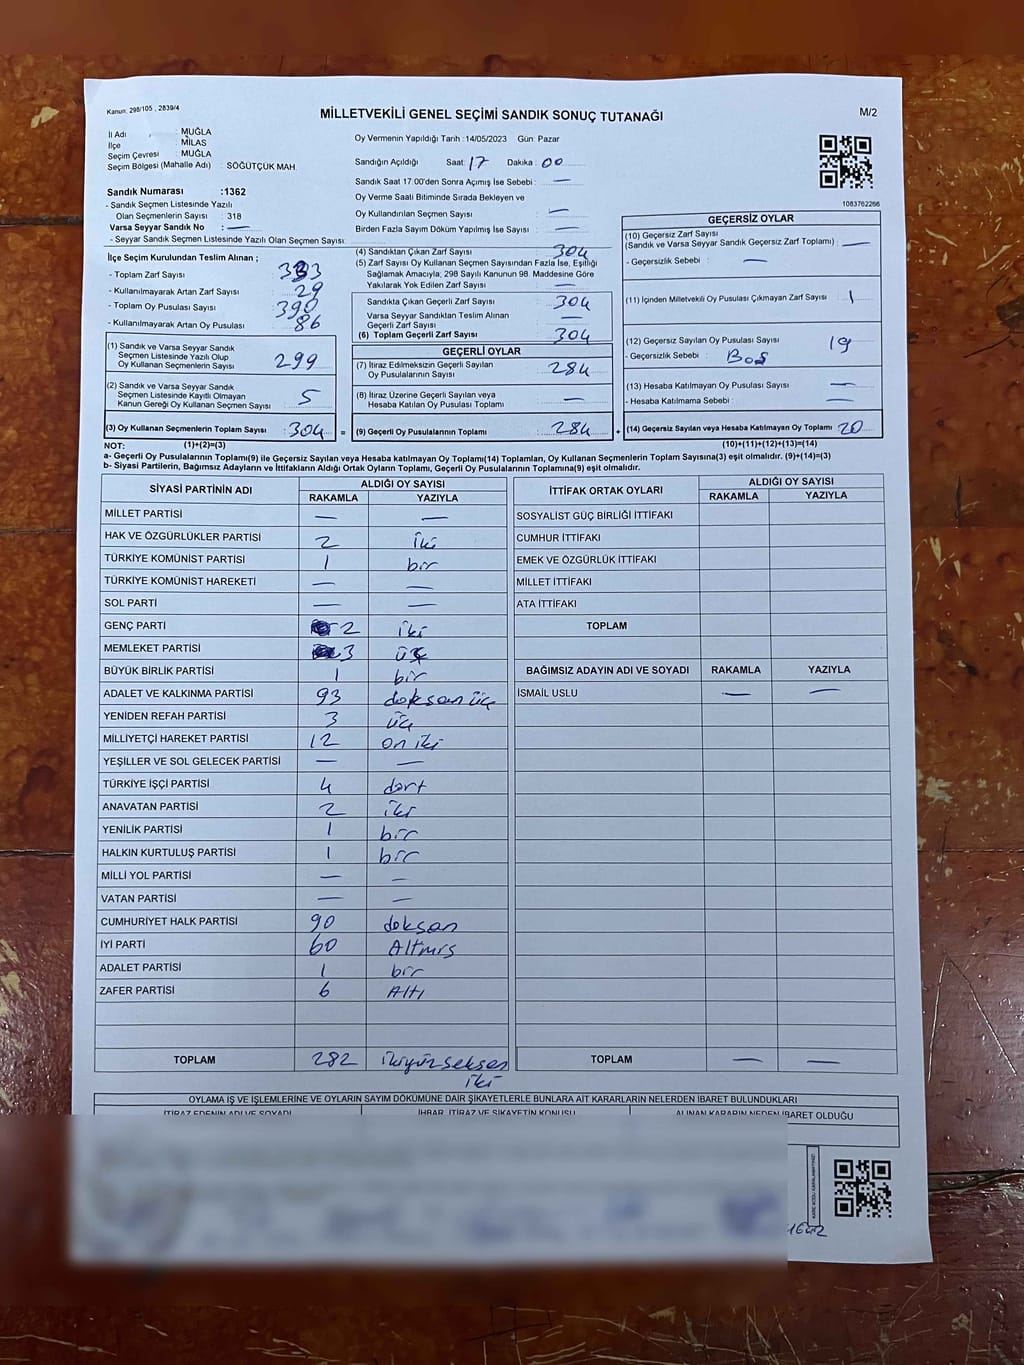 Kanun: 298/105 , 2839/4
MİLLETVEKİLİ GENEL SEÇİMİ SANDIK SONUÇ TUTANAĞI
M/2
İl Adı : MUĞLA
İlçe : MİLAS
Seçim Çevresi : MUĞLA
Seçim Bölgesi (Mahalle Adı) : SÖĞÜTÇÜK MAH.
Oy Vermenin Yapıldığı Tarih :14/05/2023 Gün: Pazar
Sandığın Açıldığı Saat: 17 Dakika : 00
Sandık Saat 17:00'den Sonra Açımış İse Sebebi : —
Oy Verme Saati Bitiminde Sırada Bekleyen ve
Oy Kullandırılan Seçmen Sayısı : —
Birden Fazla Sayım Döküm Yapılmış İse Sayısı : —
1083762266
Sandık Numarası :1362
- Sandık Seçmen Listesinde Yazılı
Olan Seçmenlerin Sayısı : 318
Varsa Seyyar Sandık No : —
- Seyyar Sandık Seçmen Listesinde Yazılı Olan Seçmen Sayısı:
İlçe Seçim Kurulundan Teslim Alınan ;
- Toplam Zarf Sayısı : 333
- Kullanılmayarak Artan Zarf Sayısı : 29
- Toplam Oy Pusulası Sayısı : 390
- Kullanılmayarak Artan Oy Pusulası : 86
(1) Sandık ve Varsa Seyyar Sandık
Seçmen Listesinde Yazılı Olup
Oy Kullanan Seçmenlerin Sayısı : 299
(2) Sandık ve Varsa Seyyar Sandık
Seçmen Listesinde Kayıtlı Olmayan
Kanun Gereği Oy Kullanan Seçmen Sayısı : 5
(3) Oy Kullanan Seçmenlerin Toplam Sayısı : 304 =
(4) Sandıktan Çıkan Zarf Sayısı : 304
(5) Zarf Sayısı Oy Kullanan Seçmen Sayısından Fazla İse, Eşitliği
Sağlamak Amacıyla; 298 Sayılı Kanunun 98. Maddesine Göre
Yakılarak Yok Edilen Zarf Sayısı : —
Sandıkta Çıkan Geçerli Zarf Sayısı : 304
Varsa Seyyar Sandıktan Teslim Alınan
Geçerli Zarf Sayısı : —
(6) Toplam Geçerli Zarf Sayısı : 304
GEÇERLİ OYLAR
(7) İtiraz Edilmeksizin Geçerli Sayılan
Oy Pusulalarının Sayısı : 284
(8) İtiraz Üzerine Geçerli Sayılan veya
Hesaba Katılan Oy Pusulası Toplamı : —
(9) Geçerli Oy Pusulalarının Toplamı : 284 +
GEÇERSİZ OYLAR
(10) Geçersiz Zarf Sayısı
(Sandık ve Varsa Seyyar Sandık Geçersiz Zarf Toplamı) : —
- Geçersizlik Sebebi : —
(11) İçinden Milletvekili Oy Pusulası Çıkmayan Zarf Sayısı : 1
(12) Geçersiz Sayılan Oy Pusulası Sayısı : 19
- Geçersizlik Sebebi : Boş
(13) Hesaba Katılmayan Oy Pusulası Sayısı : —
- Hesaba Katılmama Sebebi : —
(14) Geçersiz Sayılan veya Hesaba Katılmayan Oy Toplamı : 20
NOT: (1)+(2)=(3) (10)+(11)+(12)+(13)=(14)
a- Geçerli Oy Pusulalarının Toplamı(9) ile Geçersiz Sayılan veya Hesaba katılmayan Oy Toplamı(14) Toplamları, Oy Kullanan Seçmenlerin Toplam Sayısına(3) eşit olmalıdır. (9)+(14)=(3)
b- Siyasi Partilerin, Bağımsız Adayların ve İttifakların Aldığı Ortak Oyların Toplamı, Geçerli Oy Pusulalarının Toplamına(9) eşit olmalıdır.
SİYASİ PARTİNİN ADI ALDIĞI OY SAYISI
RAKAMLA YAZIYLA
MİLLET PARTİSİ — —
HAK VE ÖZGÜRLÜKLER PARTİSİ 2 iki
TÜRKİYE KOMÜNİST PARTİSİ 1 bir
TÜRKİYE KOMÜNİST HAREKETİ — —
SOL PARTİ — —
GENÇ PARTİ 2 iki
MEMLEKET PARTİSİ 3 üç
BÜYÜK BİRLİK PARTİSİ 1 bir
ADALET VE KALKINMA PARTİSİ 93 doksan üç
YENİDEN REFAH PARTİSİ 3 üç
MİLLİYETÇİ HAREKET PARTİSİ 12 on iki
YEŞİLLER VE SOL GELECEK PARTİSİ — —
TÜRKİYE İŞÇİ PARTİSİ 4 dört
ANAVATAN PARTİSİ 2 iki
YENİLİK PARTİSİ 1 bir
HALKIN KURTULUŞ PARTİSİ 1 bir
MİLLİ YOL PARTİSİ — —
VATAN PARTİSİ — —
CUMHURİYET HALK PARTİSİ 90 doksan
İYİ PARTİ 60 Altmış
ADALET PARTİSİ 1 bir
ZAFER PARTİSİ 6 Altı
TOPLAM 282 ikiyüz seksen
iki
İTTİFAK ORTAK OYLARI ALDIĞI OY SAYISI
RAKAMLA YAZIYLA
SOSYALİST GÜÇ BİRLİĞİ İTTİFAKI
CUMHUR İTTİFAKI
EMEK VE ÖZGÜRLÜK İTTİFAKI
MİLLET İTTİFAKI
ATA İTTİFAKI
TOPLAM
BAĞIMSIZ ADAYIN ADI VE SOYADI RAKAMLA YAZIYLA
İSMAİL USLU — —
TOPLAM — —
OYLAMA İŞ VE İŞLEMLERİNE VE OYLARIN SAYIM DÖKÜMÜNE DAİR ŞİKAYETLERLE BUNLARA AİT KARARLARIN NELERDEN İBARET BULUNDUKLARI
İTİRAZ EDENİN ADI VE SOYADI İHBAR, İTİRAZ VE ŞİKAYETİN KONUSU ALINAN KARARIN NEDEN İBARET OLDUĞU